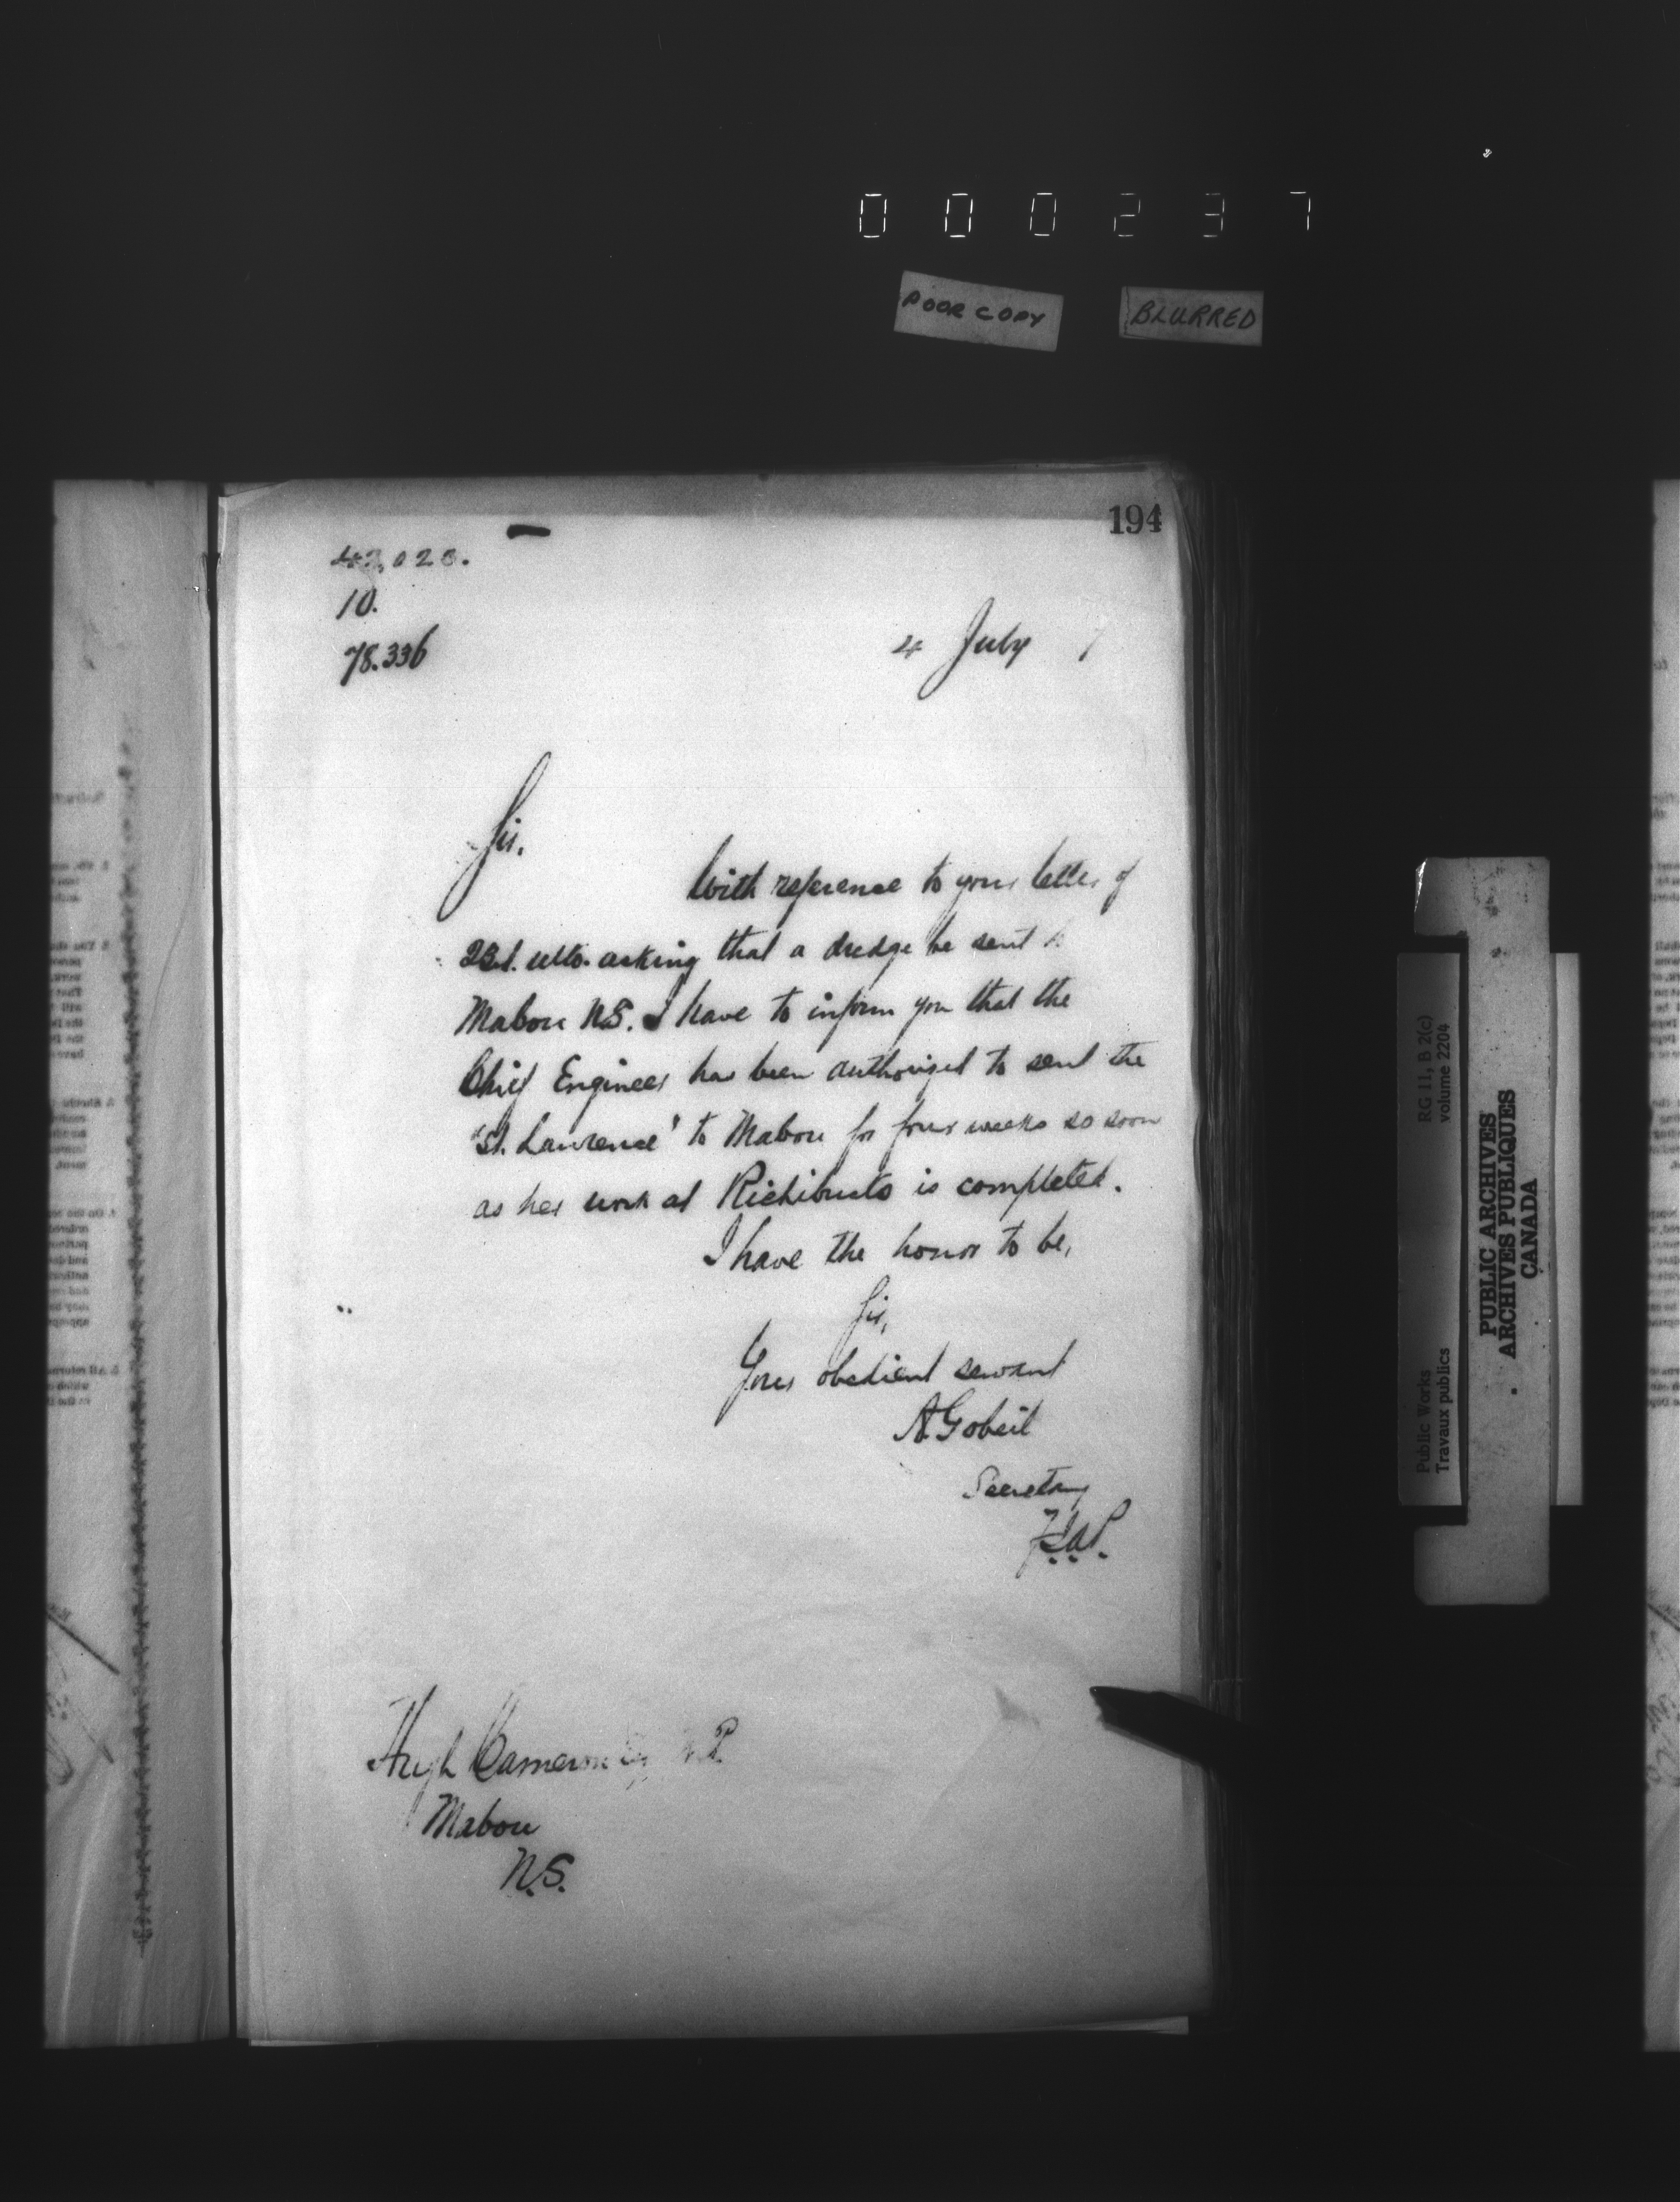 000237
POOR COPY
BLURRED
194
10.
78.336
4 July
Sir.
With reference to your letter of
ulto. asking that a dredge be sent
Mabou N.S. I have to inform you that the
Chief Engineer has been authorized to sent the
"St. Lawrence" to Mabou for four weeks so soon
as her work at Richibucto is completed.
I have the honor to be,
Sir,
Your obedient servant
A Gobeil
Secretary
Hugh Cameron
Mabou
N.S.
RG 11, B 2(c)
volume 2204
Public Works
Travaux publics
PUBLIC ARCHIVES
ARCHIVES PUBLIQUES
CANADA